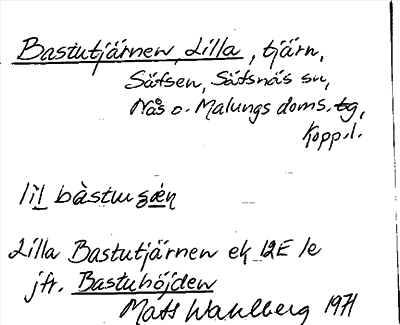 Bastutjärnen, Lilla, tjärn,
Säfsen, Säfsnäs sn,
Nås o. Malungs doms. tg,
Kopp. l.
bàstu
Lilla Bastutjärnen ek 12E 1e
jfr. Bastuhöjden
Mats Wahlberg 1971